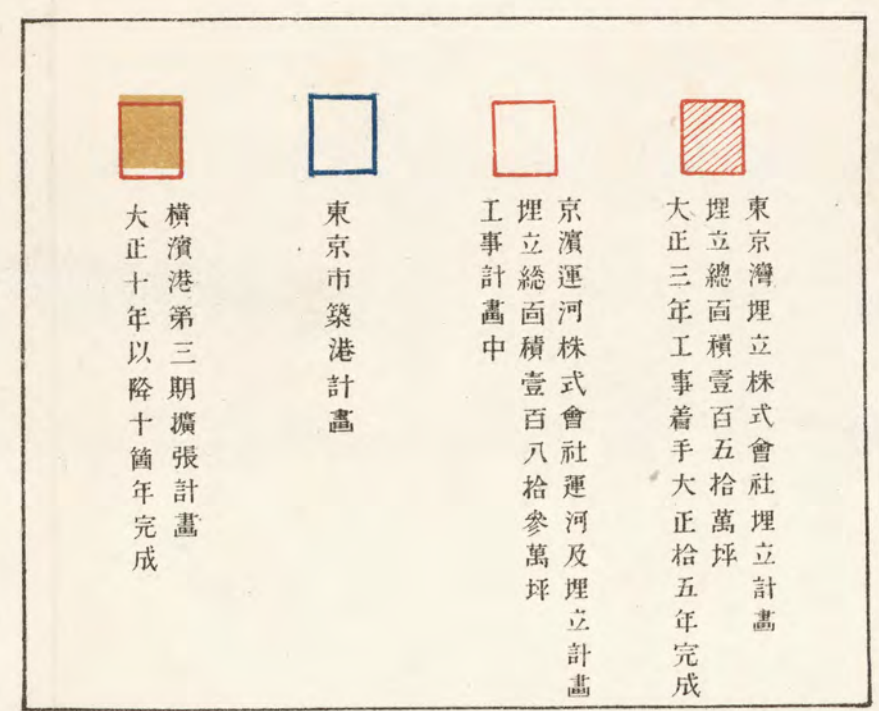 東京灣埋立株式會社埋立計畵
埋立總面積壹百五拾萬坪
大正三年工事着手大正拾五年完成
京濱運河株式會社運河及埋立計畵
埋立総面積壹百八拾參萬坪
工事計畵中
東京市築港計畵
横濱港第三期擴張計畵
大正十年以降十箇年完成